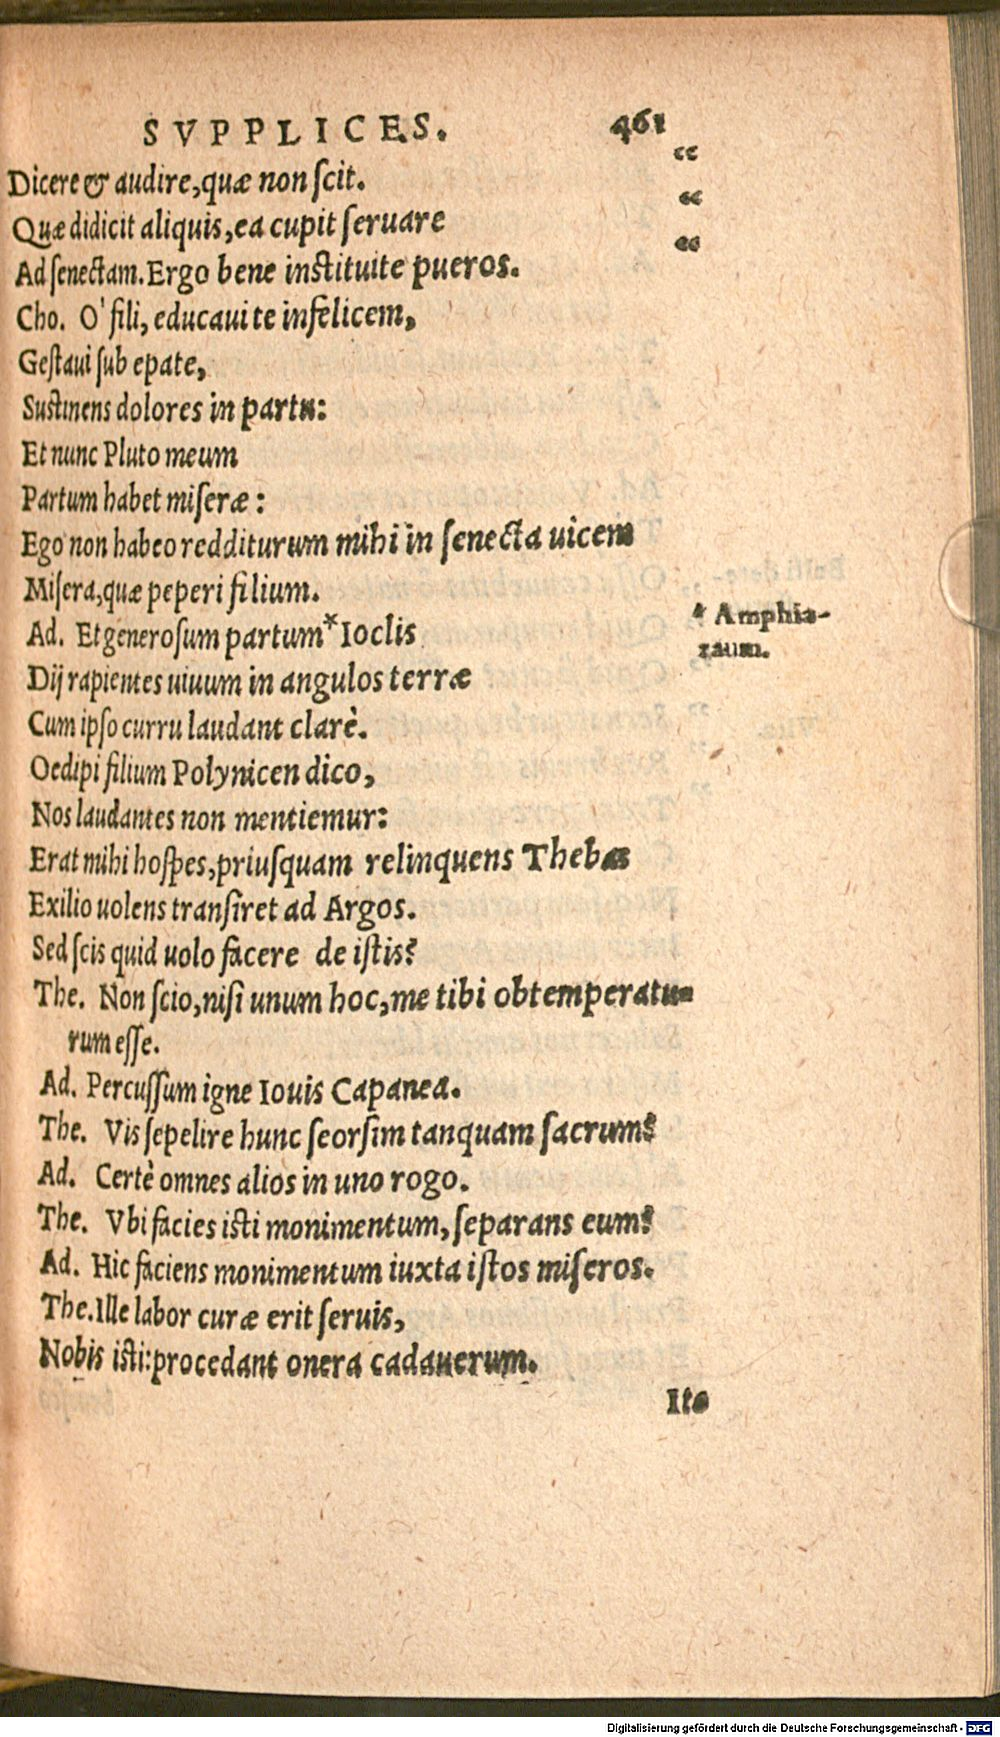 SVPPLICES. 461
Dicere & audire, quæ non ſcit. “
Quæ didicit aliquis, ea cupit ſeruare “
Ad ſenectam. Ergo bene inſtituite pueros. “
Cho. O' fili, educaui te infelicem,
Geſtaui ſub epate,
Suſtinens dolores in partu:
Et nunc Pluto meum
Partum habet miſeræ:
Ego non habeo redditurum mihi in ſenecta uicem
Miſera, quæ peperi filium.
Ad. Et generoſum partum* Ioclis
* Amphia-
raum.
Dij rapientes uiuum in angulos terræ
Cum ipſo curru laudant clarè.
Oedipi filium Polynicen dico,
Nos laudantes non mentiemur:
Erat mihi hoſpes, priuſquam relinquens Thebas
Exilio uolens tranſiret ad Argos.
Sed ſcis quid uolo facere de iſtis?
The. Non ſcio, niſi unum hoc, me tibi obtemperatu-
rum eſſe.
Ad. Percuſſum igne Iouis Capanea.
The. Vis ſepelire hunc ſeorſim tanquam ſacrum?
Ad. Certè omnes alios in uno rogo.
The. Vbi facies iſti monimentum, ſeparans eum?
Ad. Hic faciens monimentum iuxta iſtos miſeros.
The. Ille labor curæ erit ſeruis,
Nobis iſti: procedant onera cadauerum.
Ite
Digitalisierung gefördert durch die Deutsche Forschungsgemeinschaft - DFG